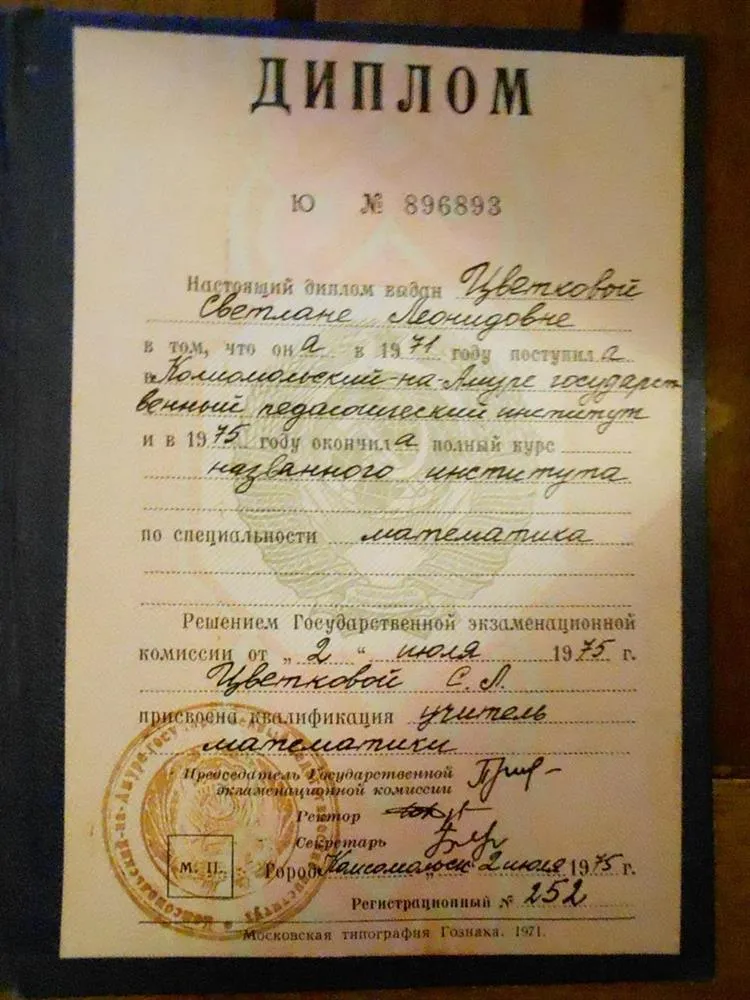 ДИПЛОМ
Ю № 896893
Настоящий диплом выдан Цветковой
Светлане Леонидовне
в том, что она в 1971 году поступила
в Комсомольский-на-Амуре государст
венный педагогический институт
и в 1975 году окончила полный курс
названного института
по специальности математика
Решением Государственной экзаменационной
комиссии от „2“ июля 1975 г.
Цветковой С. Л.
присвоена квалификация учитель
математики
Председатель Государственной
экзаменационной комиссии
Ректор
Секретарь
М. П.
Город Комсомольск 2 июля 1975 г.
Регистрационный № 252
Московская типография Гознака. 1971.